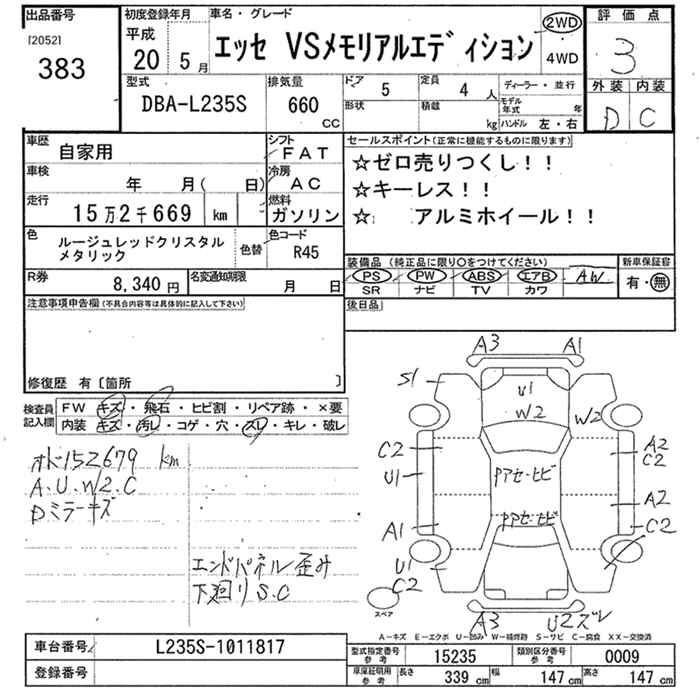 出品番号 初度登録年月 車名・グレード 評価点
[2052] 平成
383 20 5月 エッセ VSメモリアルエディション 2WD 4WD 3
型式 排気量 ドア 5 定員 4人 ディーラー・並行 外装 内装
DBA-L235S 660 CC 形状 積載 kg モデル年式 年 ハンドル 左・右 D C
車歴 自家用 シフト FAT セールスポイント(正常に機能するものに限ります)
車検 年 月( 日) 冷房 AC ☆ゼロ売りつくし!!
☆キーレス!!
走行 15万2千669 km 燃料 ガソリン ☆ アルミホイール!!
色 ルージュレッドクリスタル 色替 色コード R45
メタリック
装備品 (純正品に限り○をつけてください) 新車保証書
PS PW ABS エアB AW 有・無
SR ナビ TV カワ
R券 8,340円 名変通知期限 月 日
注意事項申告欄(不具合内容等は具体的に記入して下さい) 後日品
修復歴 有〔箇所 〕
検査員記入欄 FW キズ・飛石・ヒビ割・リペア跡・×要
内装 キズ・汚レ・コゲ・穴・スレ・キレ・破レ
オド152679 km
A.U.W2.C
Dミラーキズ
エンドパネル歪み
下廻りS.C
A3 A1
S1 U1
W2 W2
C2 A2
C2
U1 PアセーヒビA2
Pアセーヒビ C2
A1
U1
C2
スペア A3 U2ズレ
A-キズ E-エクボ U-凹み W-補修跡 S-サビ C-腐食 XX-交換済
車台番号 L235S-1011817
登録番号
型式指定番号 参考 15235 類別区分番号 参考 0009
車庫証明用 参考 長さ 339 cm 幅 147 cm 高さ 147 cm